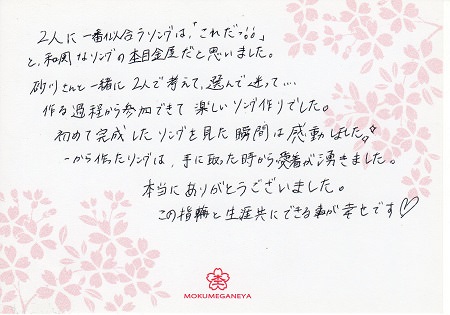 2人に一番似合うリングは、「これだっ!!」
と、和風なリングの杢目金屋だと思いました。
砂川さんと一緒に2人で考えて、選んで迷って…
作る過程から参加できて 楽しいリング作りでした。
初めて完成したリングを見た瞬間は感動しました
一から作ったリングは、手に取った時から愛着が湧きました。
本当にありがとうございました。
この指輪と生涯共にできる事が幸せです♡
MOKUMEGANEYA